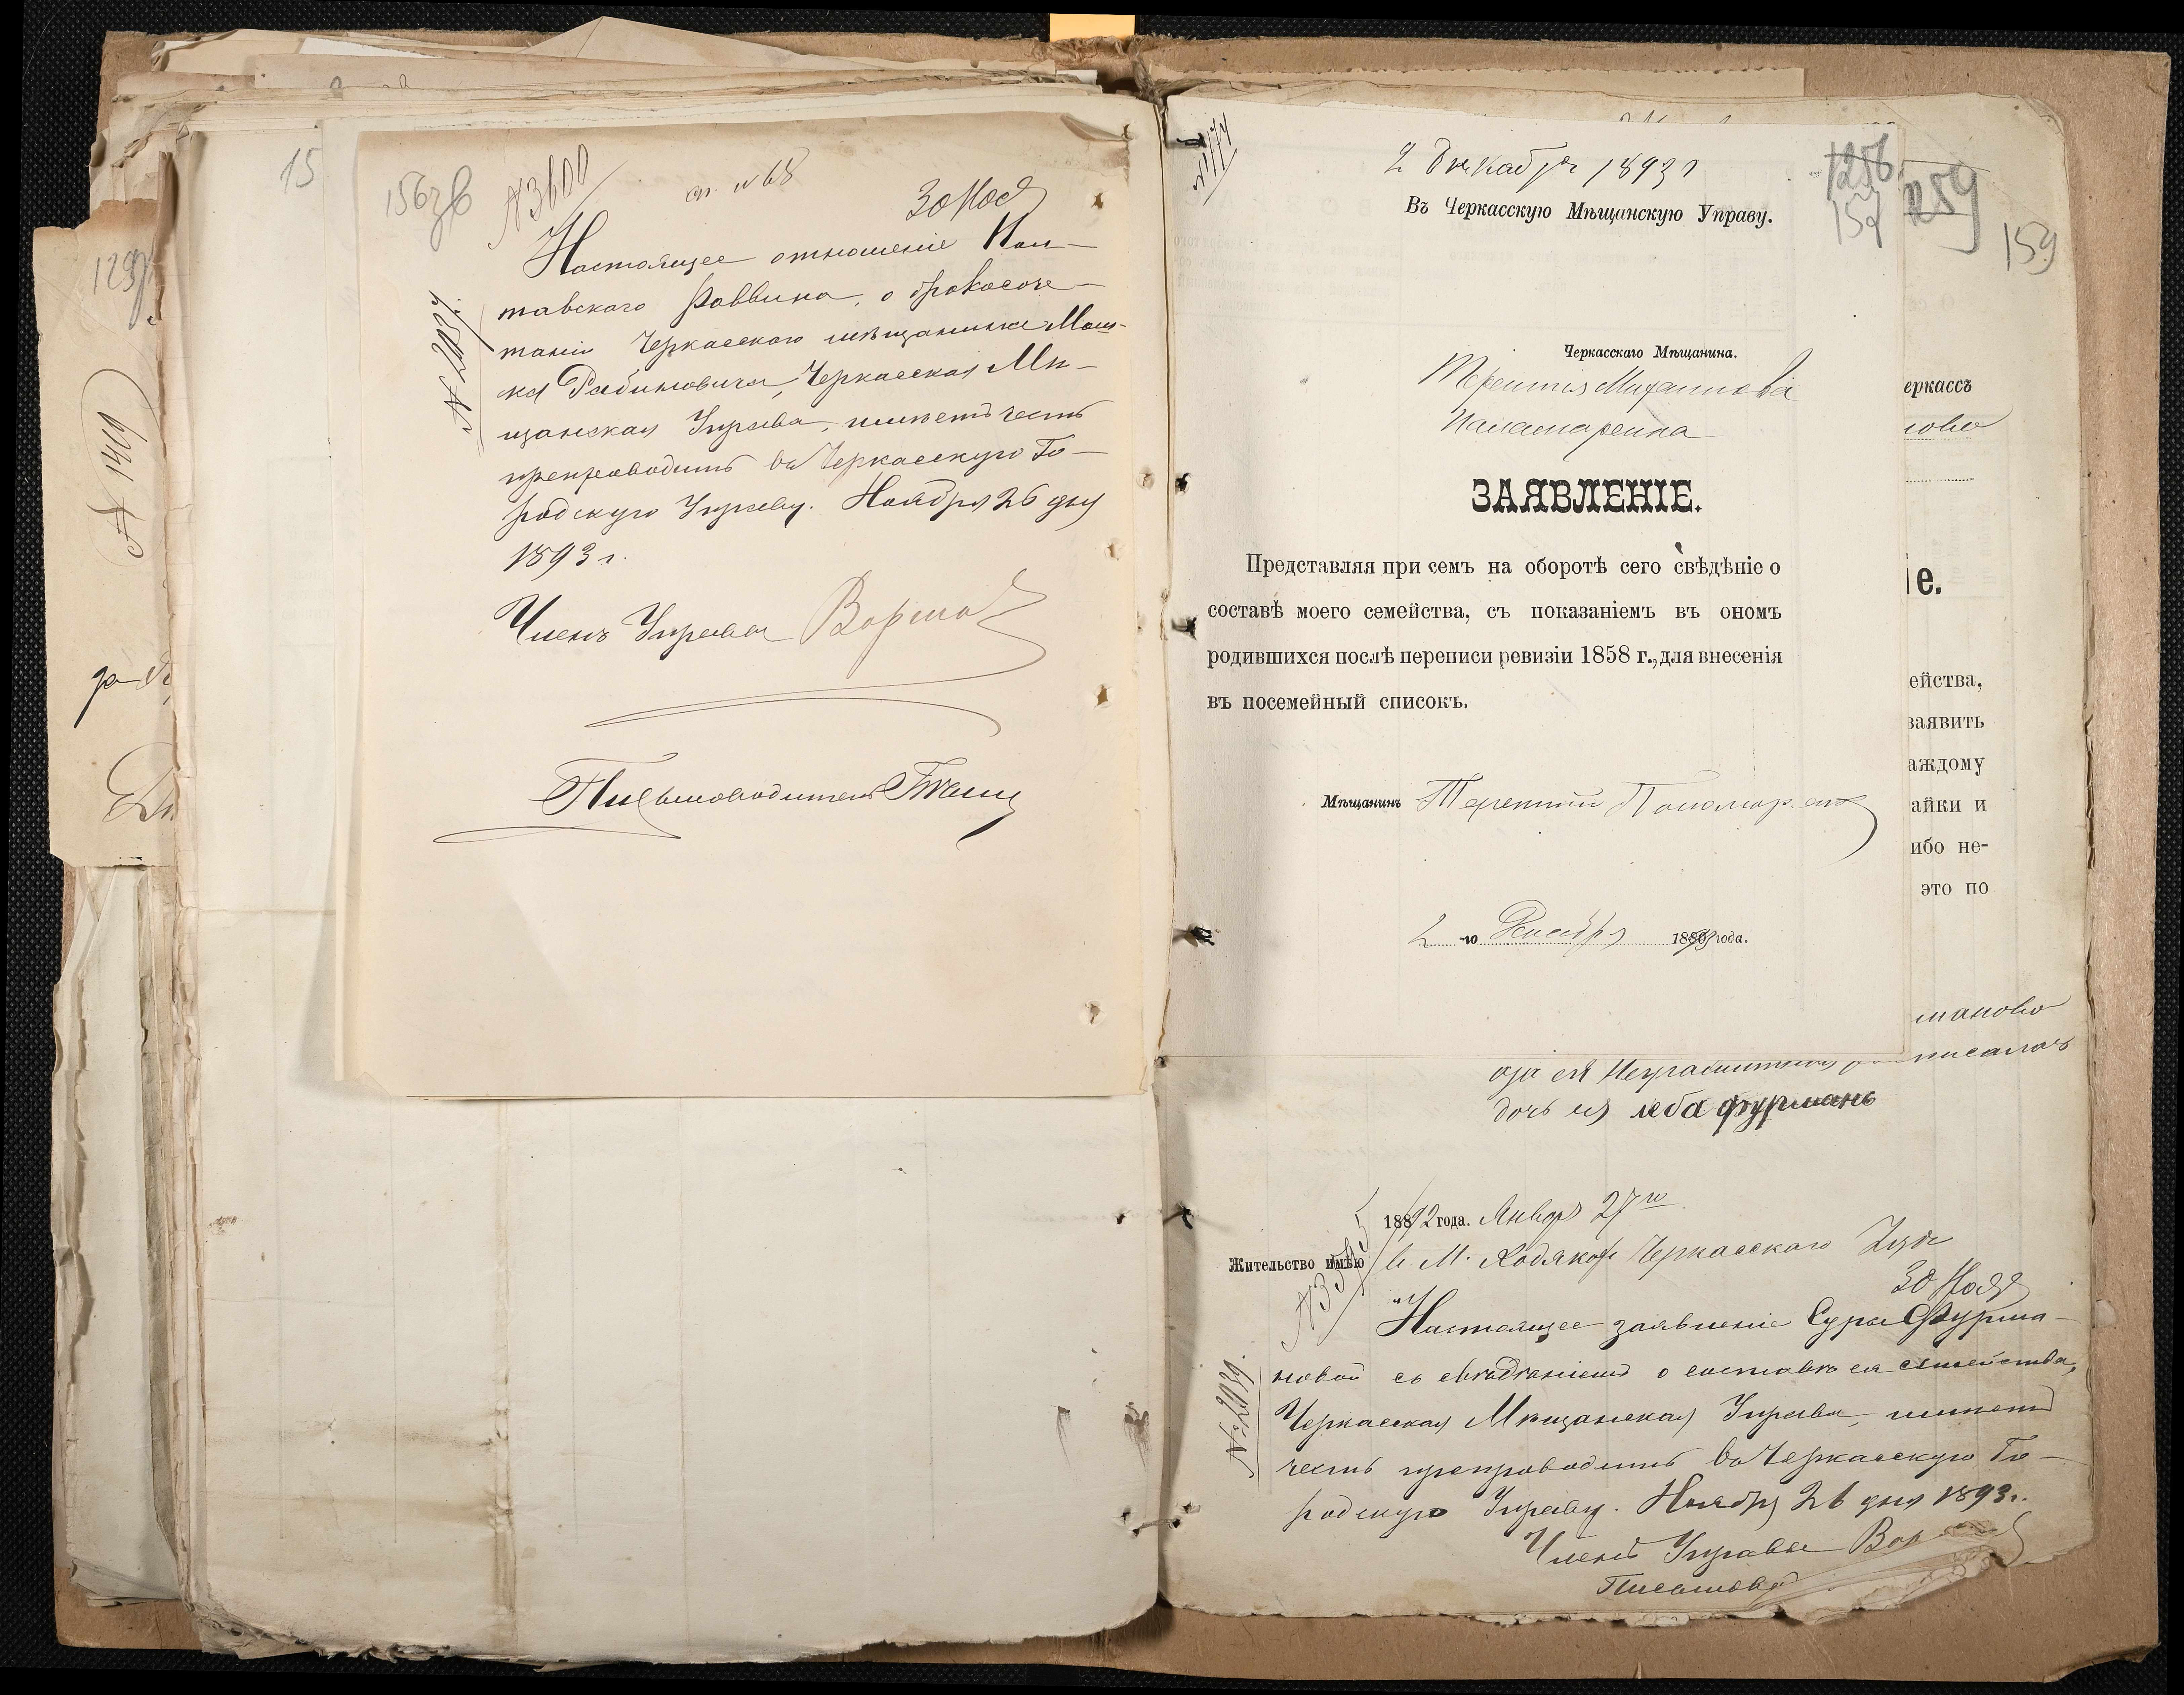 15
156 об
№ 3600
ст. № 68
30 Ноя
Настоящее отношеніе Пол-
тавскаго Раввина, о бракосоче-
таніи Черкасскаго мѣщанина Мош-
ка Рабиновича, Черкасская Мѣ-
щанская Управа, имѣетъ честь
препроводить въ Черкасскую Го-
родскую Управу. Ноября 26 дня
1893 г.
Членъ Управы
Письмоводитель
129
№ 1419
2 Декабря 1893 г
Въ Черкасскую Мѣщанскую Управу.
1256
157
259
159
Черкасскаго Мѣщанина.
Терентія
ЗАЯВЛЕНІЕ.
Представляя при семъ на оборотѣ сего свѣдѣніе о
составѣ моего семейства, съ показаніемъ въ ономъ
родившихся послѣ переписи ревизіи 1858 г., для внесенія
въ посемейный списокъ.
Мѣщанинъ Терентій Пономаренко
2 -го Декабря 1893 года.
еркассъ
ново
іе.
ейства,
заявить
аждому
айки и
ибо не-
это по
маново
неграмотная
дочь ея леба фурмань
1892 года. Января 27 го
Жительство имѣю
30 Ноя
Настоящее заявленіе Суры Фурма-
новой съ свѣдѣніемъ о составѣ ея семейства,
Черкасская Мѣщанская Управа, имѣетъ
честь препроводить въ Черкасскую Го-
родскую Управу. Ноября 26 дня 1893 г.
Членъ Управы
Письмовод